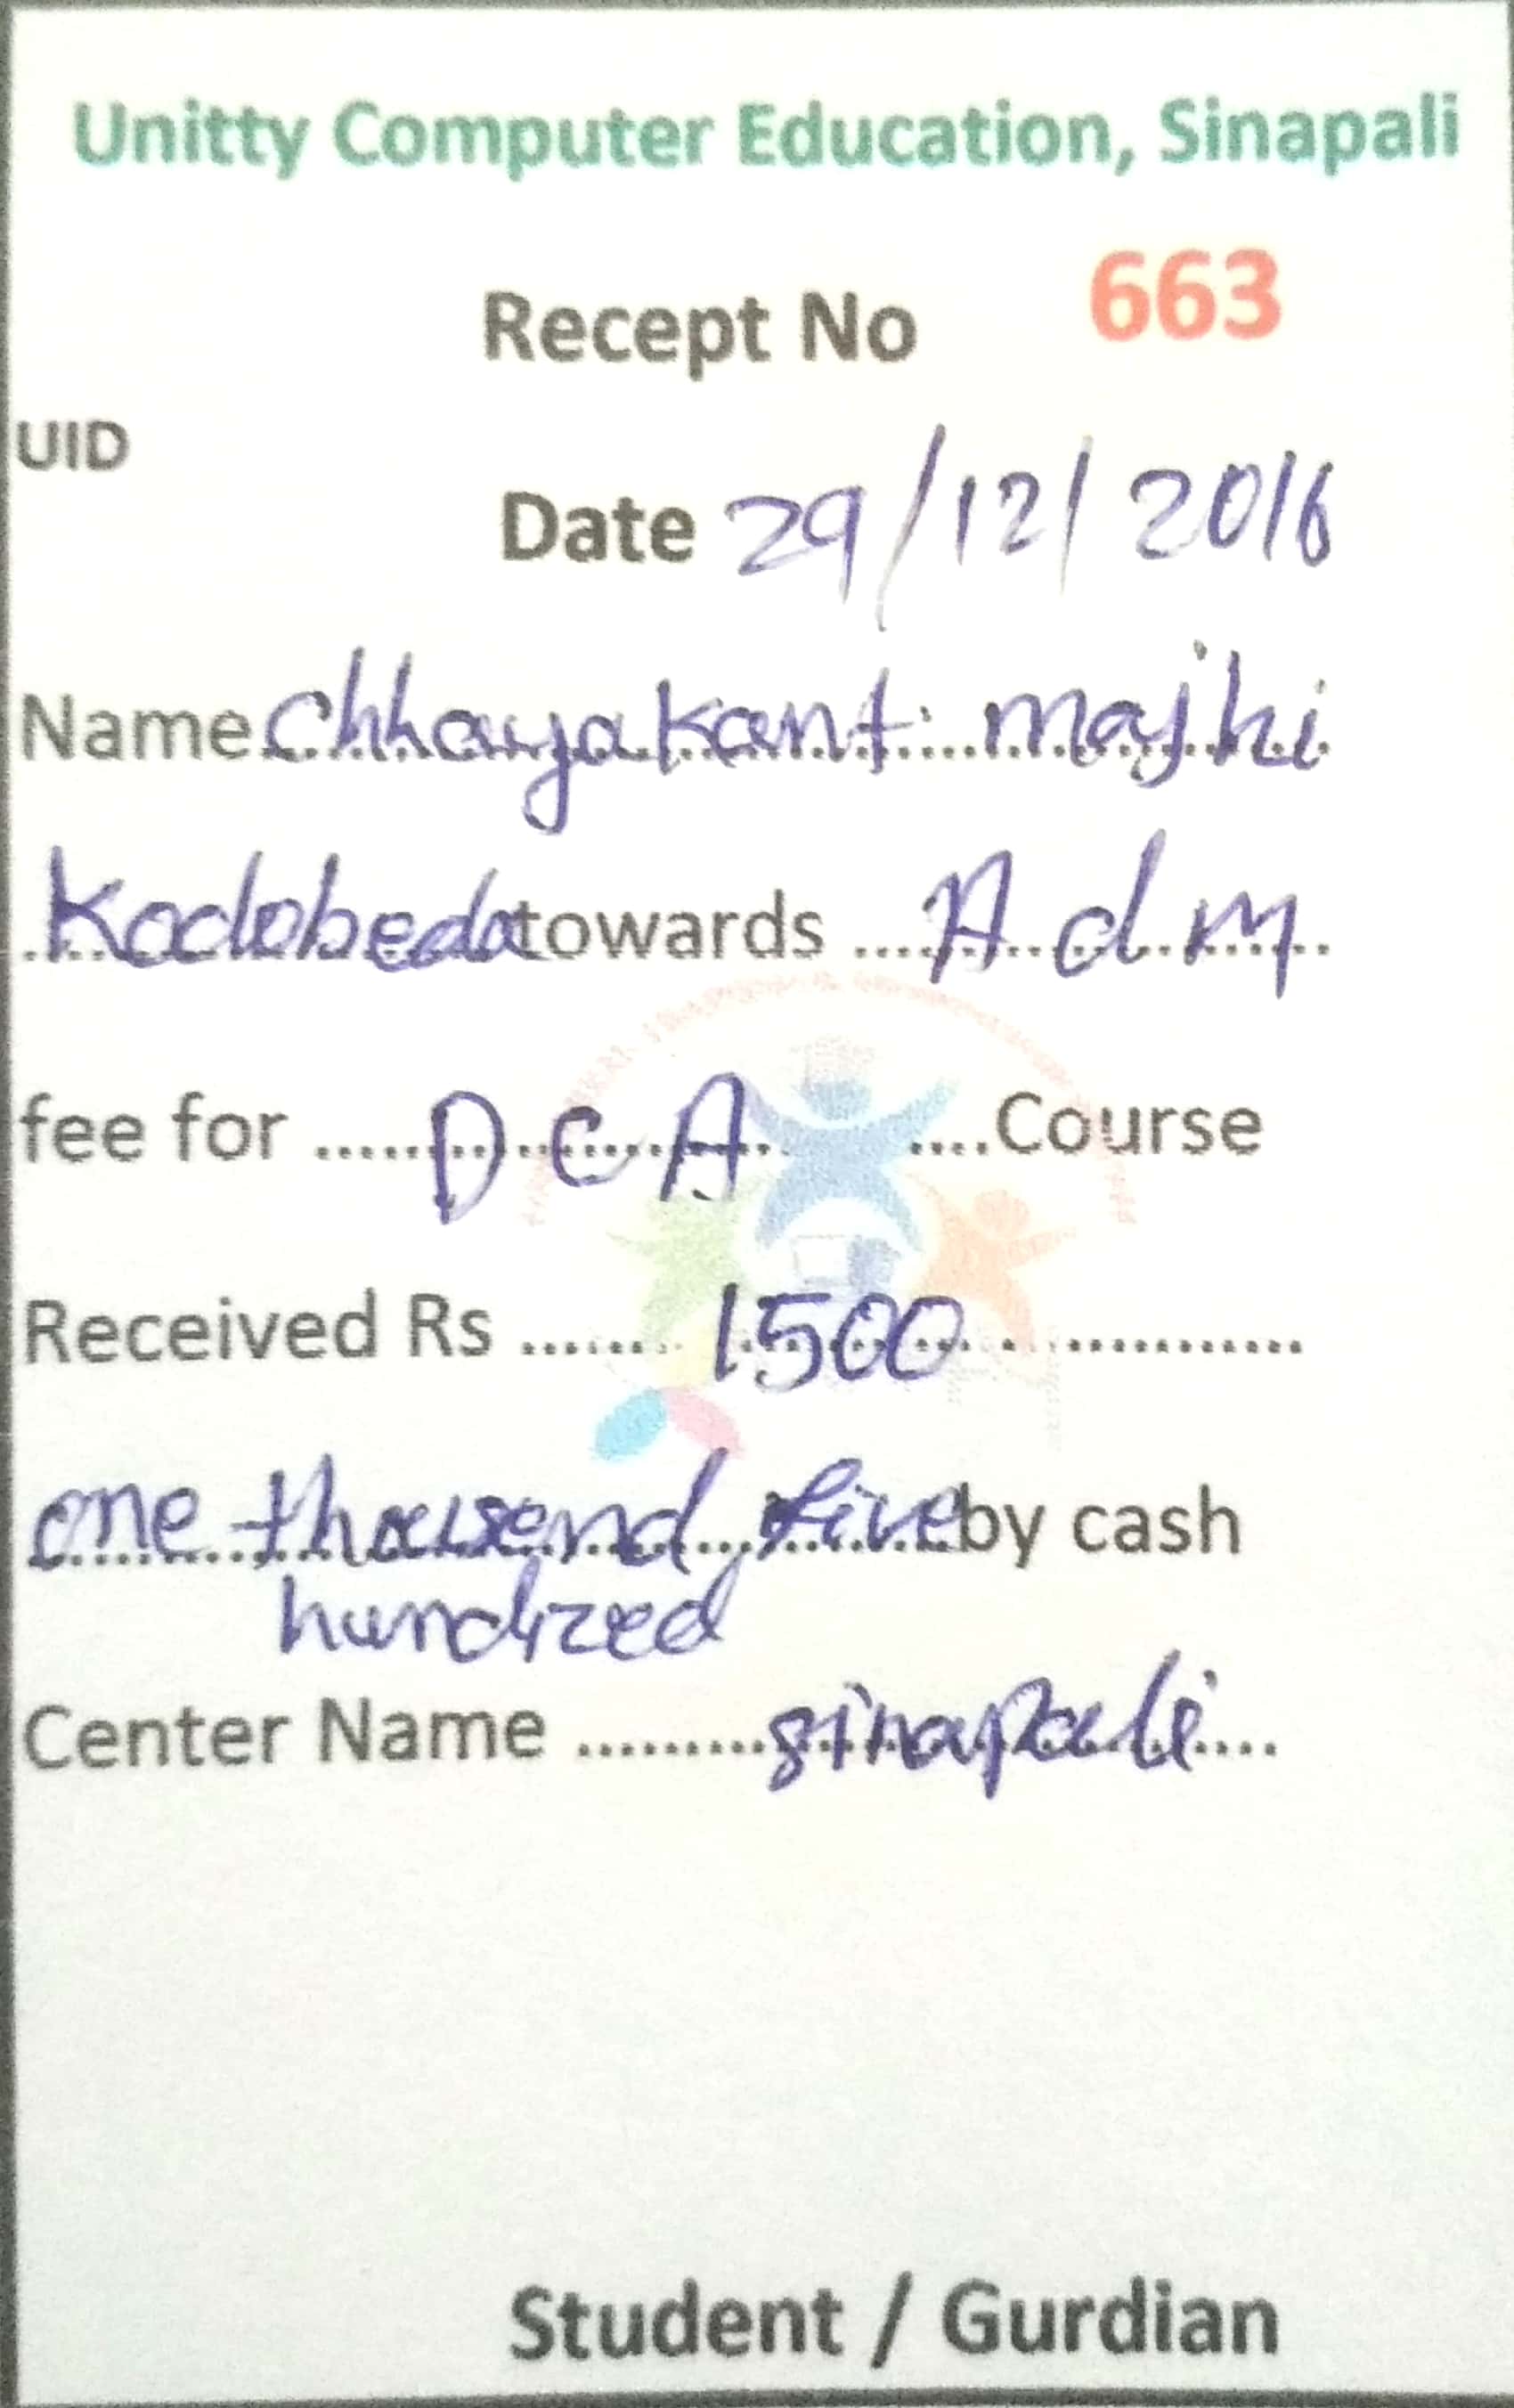 Unitty Computer Education, Sinapali
Recept No 663
UID
Date 29/12/2016
Name Chhayakant majhi
Kodobeda towards Adm
fee for DCA Course
Received Rs 1500
one thousend five by cash
hundred
Center Name sinapali
Student / Gurdian